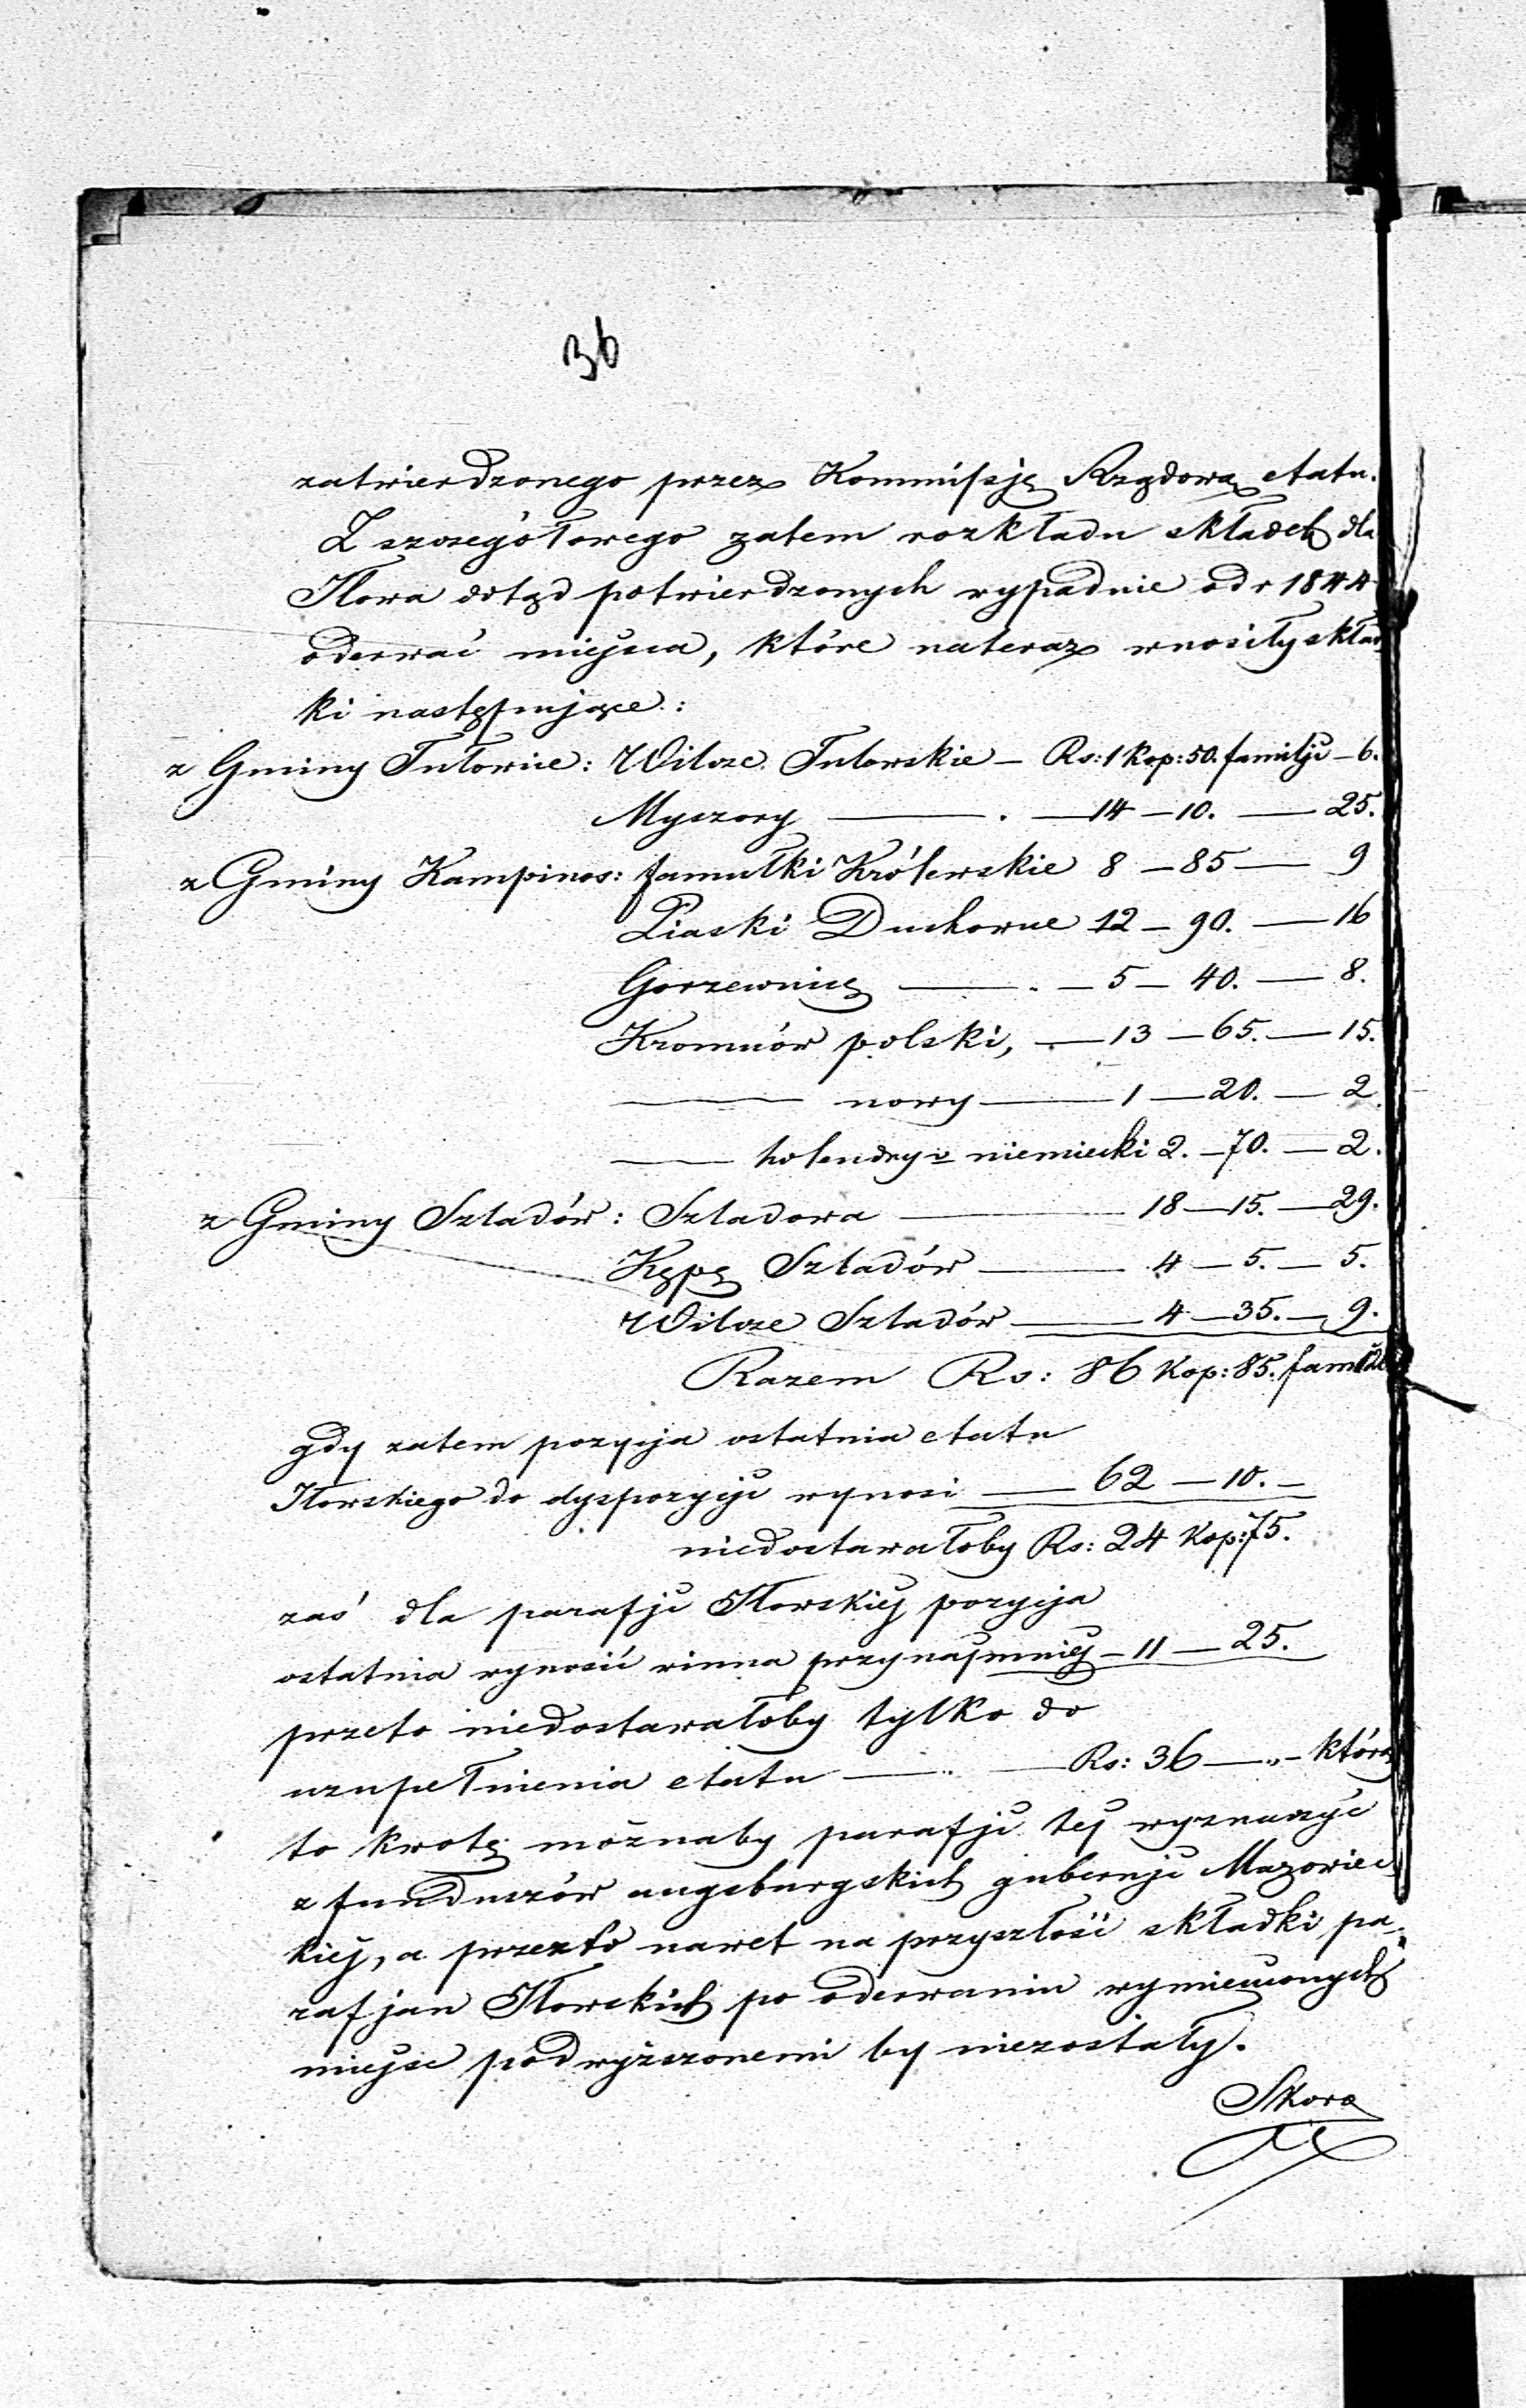 36
zatwierdzonego przez Kommissję Rządową etatu.
Z szczegółowego zatem rozkładu składek dla
Iłowa dotąd potwierdzonych wypadnie od r 1844
oderwać miejsca, które nateraz wnosiły skład
ki następujące:
z Gminy Tułowice: Wilcze Tułowskie — Rs: 1 Kop: 50. familji — 6.
Myszory — 14 — 10. — 25.
z Gminy Kampinos: famułki Królewskie 8 — 85 — 9
Piaski Duchowne 12 — 90. — 16
Gorzewnicę — 5 — 40. — 8.
Kromnów polski, — 13 — 65. — 15.
— nowy — 1 — 20. — 2.
— holendry v niemiecki 2. — 70. — 2.
z Gminy Szladów: Szladowa — 18 — 15. — 29.
Kępę Szladów — 4 — 5. — 5.
Wilcze Szladów — 4 — 35. — 9.
Razem Rs: 86 Kop: 85. fam
gdy zatem pozycja ostatnia etatu
Iłowskiego do dyspozycji wynosi — 62 — 10. —
niedostawałoby Rs: 24 Kop: 75.
zaś dla parafji Iłowskiej pozycja
ostatnia wynosić winna przynajmniej — 11 — 25.
przeto niedostawałoby tylko do
uzupełnienia etatu — Rs: 36 — „ — którą
to kwotę możnaby parafji tej wyznaczyć
z funduszów augsburgskich gubernji Mazowiec
kiej, a przezto nawet na przyszłość składki pa-
rafjan Iłowskich po oderwaniu wymienionych
miejsc podwyższonemi by niezostały.